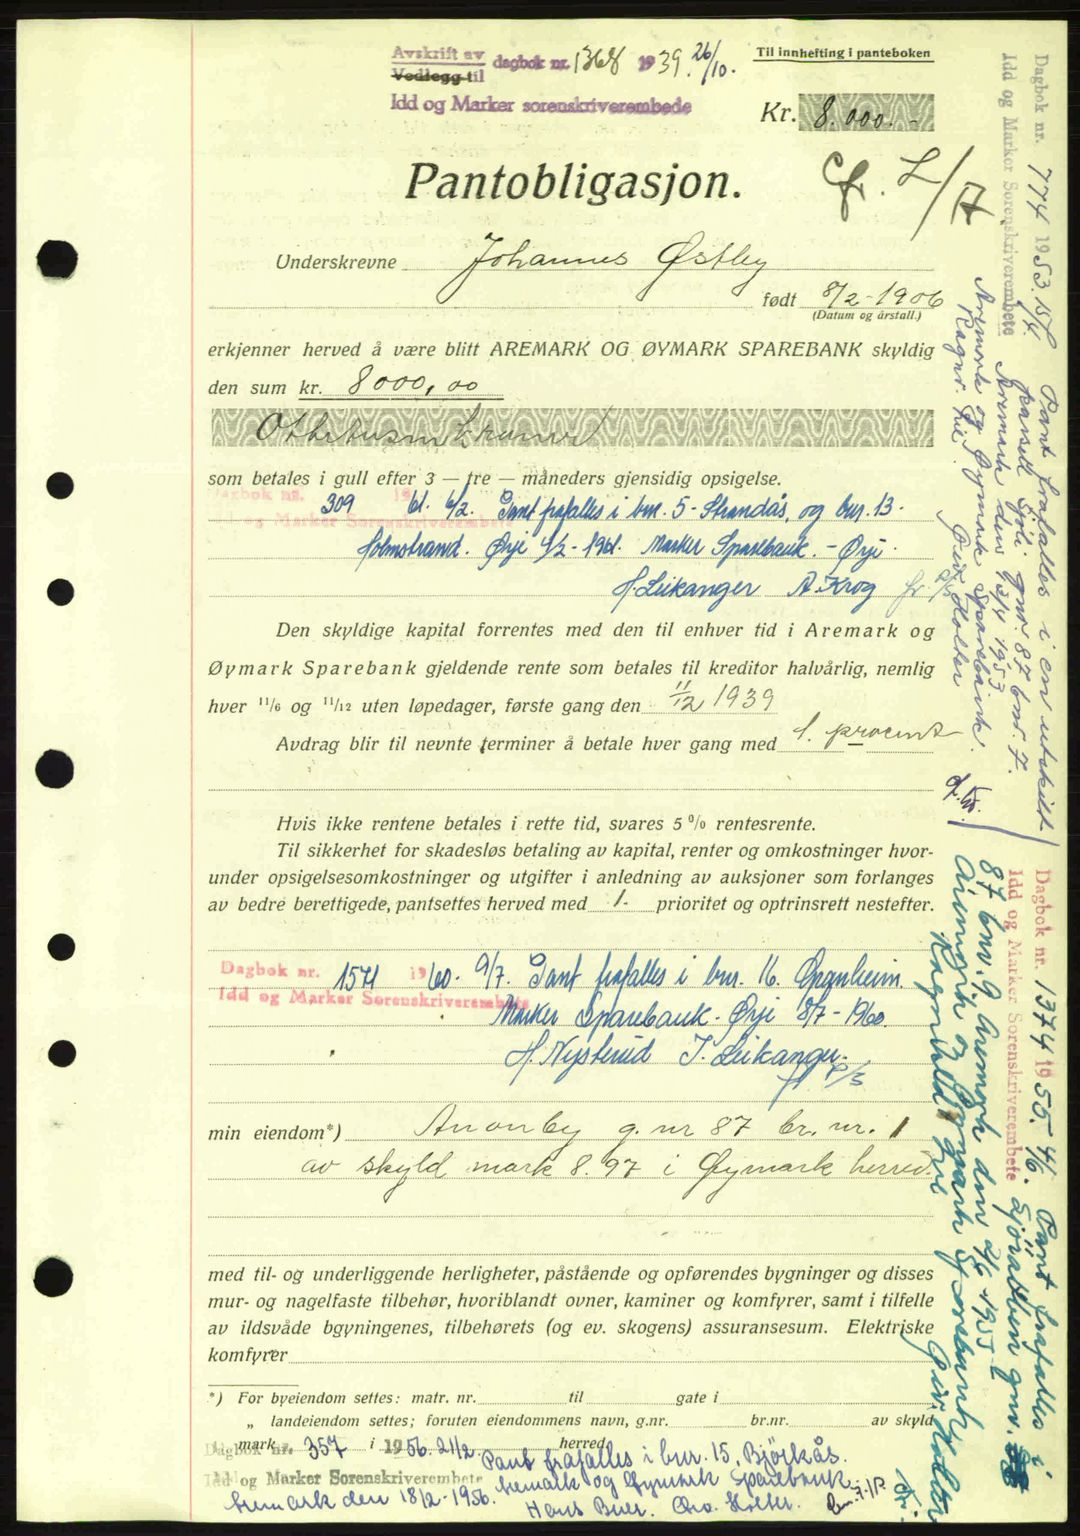 Avskrift av
Vedlegg til
dagbok nr. 1368 1939. 26/10.
Idd og Marker sorenskriverembede
Til innhefting i panteboken
Kr. 8.000.-
Pantobligasjon.
Underskrevne Johannes Østby
født 8/2-1906
(Datum og årstall.)
erkjenner herved å være blitt AREMARK OG ØYMARK SPAREBANK skyldig
den sum kr. 8000,00
Ottetusen kroner
som betales i gull efter 3 — tre — måneders gjensidig opsigelse.
Dagbok nr. 309 1961. 6/2. Pant frafalles i bnr. 5 - Strandås, og bnr. 13 -
Idd og Marker Sorenskriverembete
Holmstrand. Ørje 4/2-1961. Marker Sparebank. - Ørje.
H. Leikanger A. Krog
Den skyldige kapital forrentes med den til enhver tid i Aremark og
Øymark Sparebank gjeldende rente som betales til kreditor halvårlig, nemlig
hver 11/6 og 11/12 uten løpedager, første gang den 11/12 1939
Avdrag blir til nevnte terminer å betale hver gang med 1. procent
Hvis ikke rentene betales i rette tid, svares 5 % rentesrente.
Til sikkerhet for skadesløs betaling av kapital, renter og omkostninger hvor-
under opsigelsesomkostninger og utgifter i anledning av auksjoner som forlanges
av bedre berettigede, pantsettes herved med 1. prioritet og optrinsrett nestefter.
Dagbok nr. 1571 1960. 9/7. Pant frafalles i bnr. 16.
Idd og Marker Sorenskriverembete
Marker Sparebank. Ørje 8/7-1960.
H. Nystrud J. Leikanger.
min eiendom*) g. nr 87 br. nr. 1
av skyld mark 8.97 i Øymark herred.
med til- og underliggende herligheter, påstående og opførendes bygninger og disses
mur- og nagelfaste tilbehør, hvoriblandt ovner, kaminer og komfyrer, samt i tilfelle
av ildsvåde bgyningenes, tilbehørets (og ev. skogens) assuransesum. Elektriske
komfyrer
*) For byeiendom settes: matr. nr. til gate i
„ landeiendom settes; foruten eiendommens navn, g.nr. br.nr. av skyld
mark i herred.
Dagbok nr. 357 1956. 21/2. Pant frafalles i bnr. 15, Björkås.
Idd og Marker Sorenskriverembete
Aremark og Øymark Sparebank.
Aremark den 18/2-1956.
Hans Buer.
Dagbok nr. 774 1953. 15/4. Pant frafalles i en utskilt
Idd og Marker Sorenskriverembete
parsell gnr. 87 bnr. 7.
Aremark den 13/4 1953
Aremark og Øymark Sparebank.
Ragnv. Lie. Holter
Dagbok nr. 1374 1955. 4/6. Pant frafalles i
Idd og Marker Sorenskriverembete
gnr.
87 bnr. 9 Aremark den 2/6-1955
Aremark og Øymark Sparebank
Holter